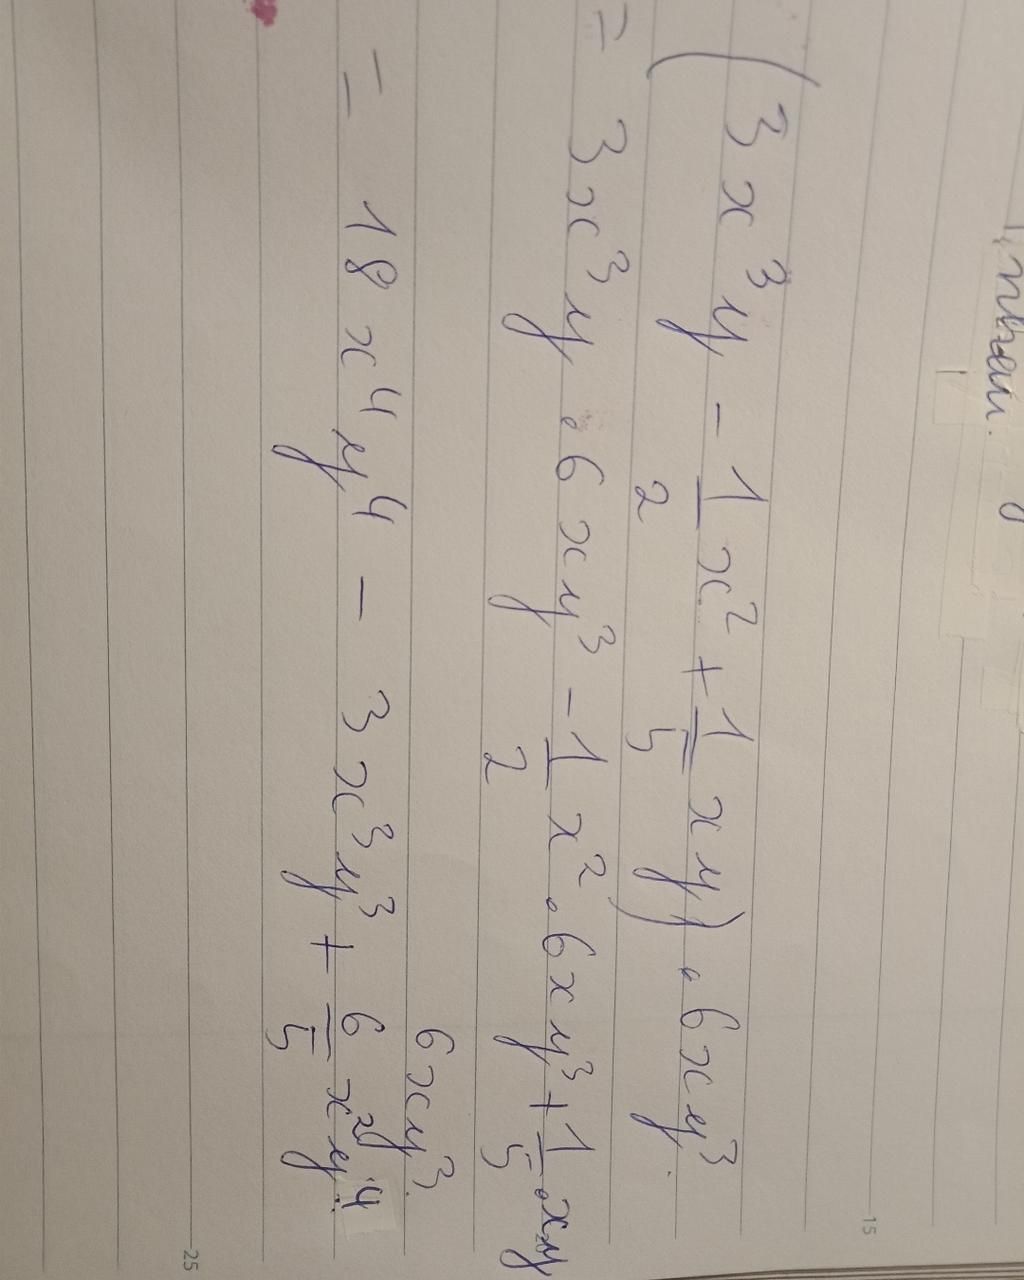 (3x³y - 1/2 x² + 1/5 xy) . 6xy³
= 3x³y . 6xy³ - 1/2 x² . 6xy³ + 1/5 . xy
6xy³.
= 18x⁴y⁴ - 3x³y³ + 6/5 x²y⁴.
15
25